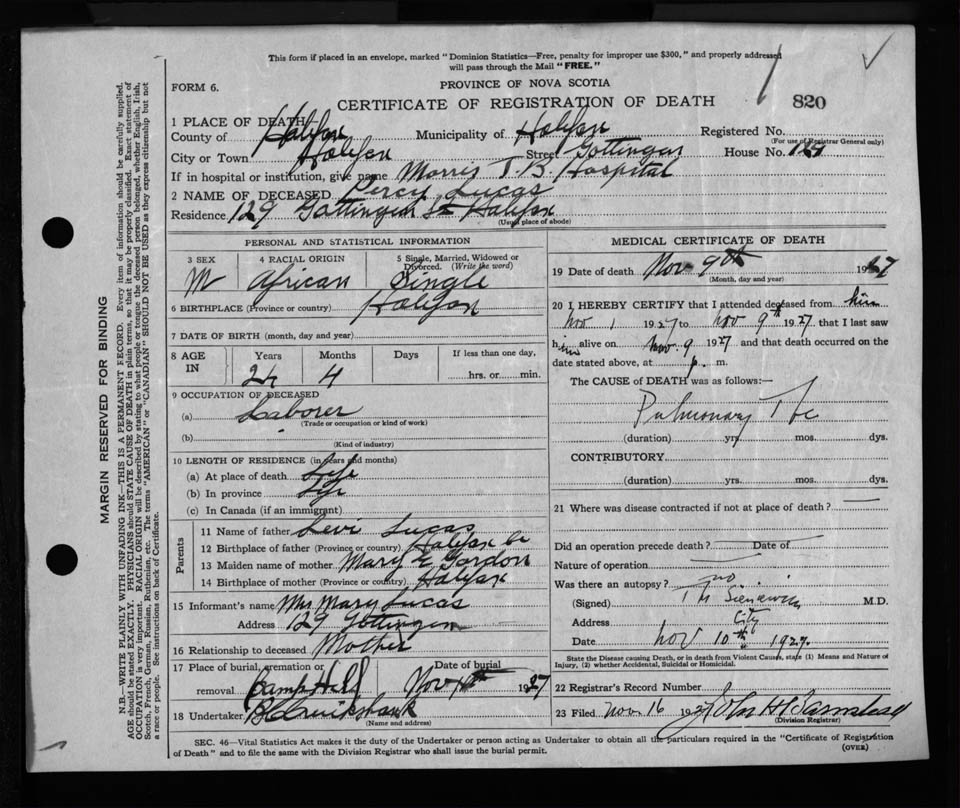 This form if placed in an envelope, marked "Dominion Statistics—Free, penalty for improper use $300," and properly addressed
will pass through the Mail "FREE."
FORM 6.
PROVINCE OF NOVA SCOTIA
CERTIFICATE OF REGISTRATION OF DEATH
820
1 PLACE OF DEATH
County of Halifax Municipality of Halifax Registered No.
(For use of Registrar General only)
City or Town Halifax Street Gottingen House No.
If in hospital or institution, give name Morris T.B. Hospital
2 NAME OF DECEASED Percy Lucas
Residence 129 Gottingen St Halifax
(Usual place of abode)
PERSONAL AND STATISTICAL INFORMATION
3 SEX M
4 RACIAL ORIGIN African
5 Single, Married, Widowed or Divorced. (Write the word) Single
6 BIRTHPLACE (Province or country) Halifax
7 DATE OF BIRTH (month, day and year)
8 AGE IN Years Months 4 Days If less than one day, hrs. or min.
9 OCCUPATION OF DECEASED
(a) Laborer
(Trade or occupation or kind of work)
(b)
(Kind of industry)
10 LENGTH OF RESIDENCE (in years and months)
(a) At place of death Life
(b) In province Life
(c) In Canada (if an immigrant)
Parents
11 Name of father Levi Lucas
12 Birthplace of father (Province or country) Halifax Co
13 Maiden name of mother Mary E Gordon
14 Birthplace of mother (Province or country) Halifax
15 Informant's name Mrs Mary Lucas
Address 129 Gottingen
16 Relationship to deceased Mother
17 Place of burial, cremation or removal Camp Hill Date of burial Nov 1927
18 Undertaker Cruikshank
(Name and address)
MEDICAL CERTIFICATE OF DEATH
19 Date of death Nov 9th 1927
(Month, day and year)
20 I HEREBY CERTIFY that I attended deceased from him
Nov 1 1927 to Nov 9th 1927 that I last saw
him alive on Nov 9 1927 and that death occurred on the
date stated above, at p. m.
The CAUSE OF DEATH was as follows:—
Pulmonary Tbc
(duration) yrs. mos. dys.
CONTRIBUTORY
(duration) yrs. mos. dys.
21 Where was disease contracted if not at place of death? —
Did an operation precede death? — Date of —
Nature of operation —
Was there an autopsy? no
(Signed) M.D.
Address City
Date Nov 10th 1927.
State the Disease causing Death, or in death from Violent Causes, state (1) Means and Nature of
Injury, (2) whether Accidental, Suicidal or Homicidal.
22 Registrar's Record Number
23 Filed Nov. 16 1927 John H Barnstead
(Division Registrar)
SEC. 46—Vital Statistics Act makes it the duty of the Undertaker or person acting as Undertaker to obtain all the particulars required in the "Certificate of Registration
of Death" and to file the same with the Division Registrar who shall issue the burial permit.
(OVER)
MARGIN RESERVED FOR BINDING
N.B.—WRITE PLAINLY WITH UNFADING INK—THIS IS A PERMANENT RECORD. Every item of information should be carefully supplied.
AGE should be stated EXACTLY. PHYSICIANS should STATE CAUSE OF DEATH in plain terms, so that it may be properly classified. Exact statement of
OCCUPATION is very important. RACIAL ORIGIN will be described by stating to what people or tongue the deceased person belonged, whether English, Irish,
Scotch, French, German, Russian, Ruthenian, etc. The terms "AMERICAN" or "CANADIAN" SHOULD NOT BE USED as they express citizenship but not
a race or people. See instructions on back of Certificate.